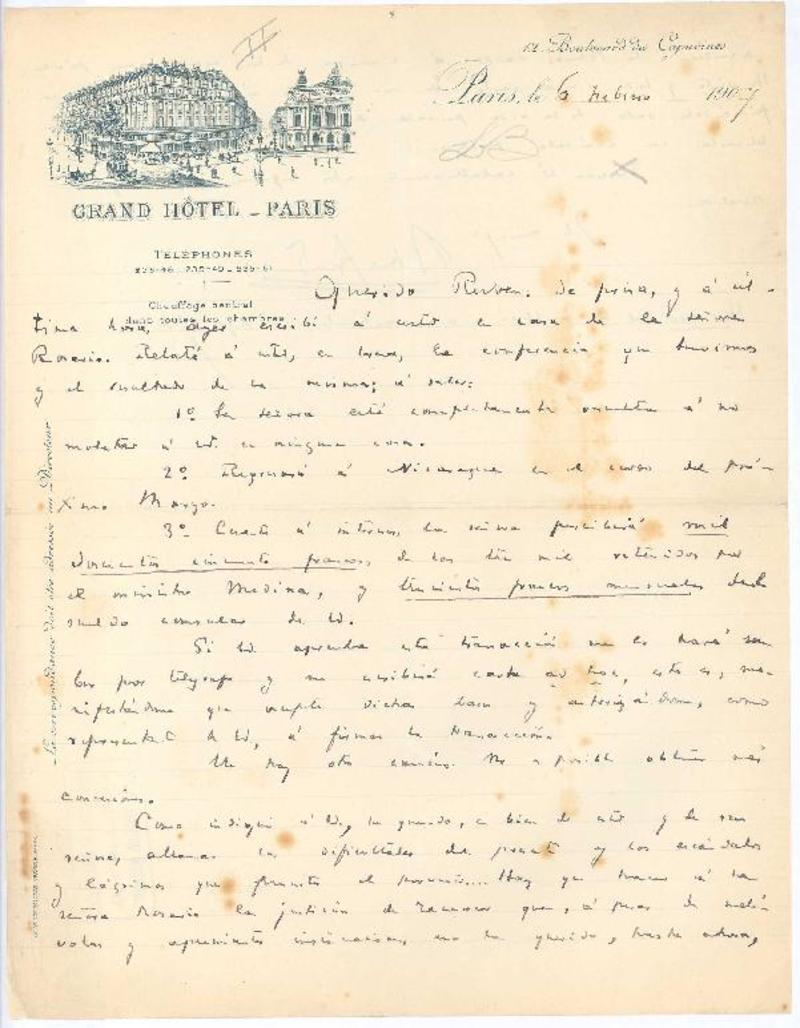 II
12 Boulevard des Capucines
Paris, le 6 Febrero 1907
GRAND HÔTEL - PARIS
TÉLÉPHONES
Chauffage central
dans toutes les chambres
Querido Ruben: de prisa, y á úl-
tima hora, ayer escribí á usted en casa de la señora
Rosario. Relaté á usted, en breve, la conferencia que tuvimos
y el resultado de la misma; á saber:
1º La señora está completamente resuelta á no
molestar á Vd. en ninguna cosa.
2º Regresará á Nicaragua en el curso del pró-
ximo Marzo.
3º Cuanto á intereses, la señora percibirá mil
doscientos cincuenta francos, de los tres mil retenidos por
el ministro Medina, y trescientos francos mensuales del
sueldo consular de Vd.
Si Vd. aprueba esta transacción me lo hará sa-
ber por telégrafo y me escribirá carta ad hoc, esto es, ma-
nifestándome que acepta dichas bases y autorizándome, como
representante de Vd, á firmar la transacción.
No hay otro camino. No es posible obtener más
concesiones.
Como indiqué á Vd, he querido, en bien de usted y de su
señora, allanar las dificultades del presente y los escándalos
y lágrimas que promete el porvenir... Hay que hacer á la
señora Rosario la justicia de reconocer que, á pesar de malé-
volas y apremiantes insinuaciones, no ha querido, hasta ahora,
La correspondance doit être adressée au Directeur